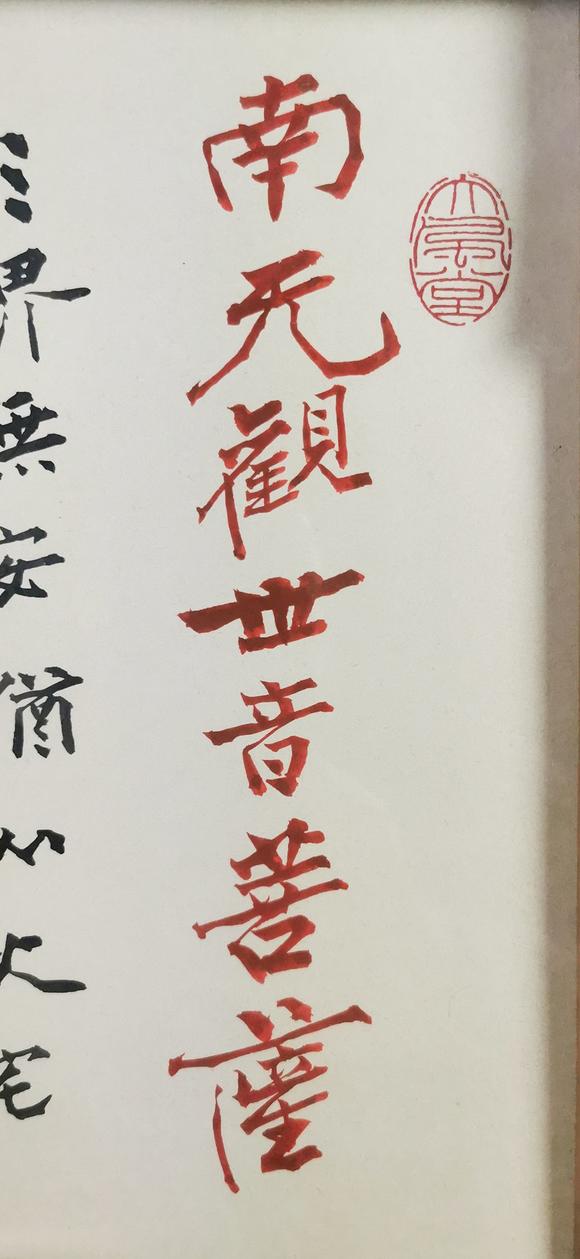 大風堂
南无觀世音菩薩
三界無安猶如火宅